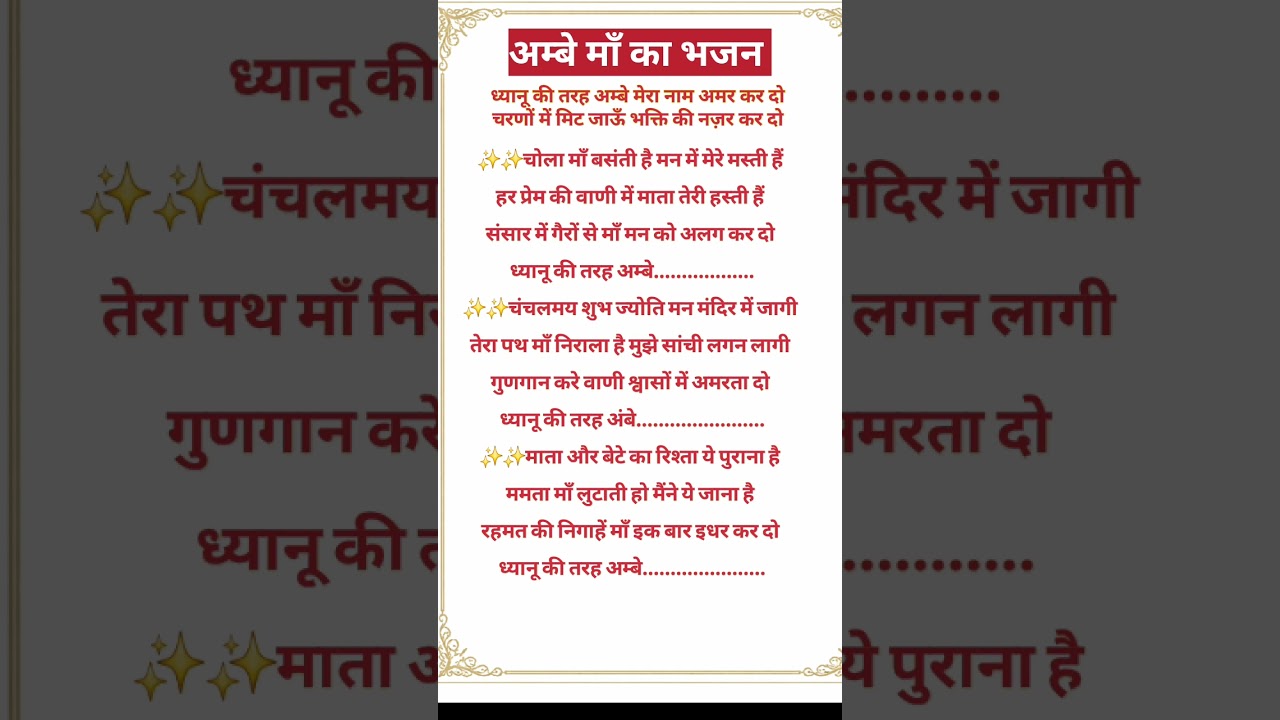 अम्बे माँ का भजन
ध्यानू की तरह अम्बे मेरा नाम अमर कर दो
चरणों में मिट जाऊँ भक्ति की नज़र कर दो
✨✨चोला माँ बसंती है मन में मेरे मस्ती हैं
हर प्रेम की वाणी में माता तेरी हस्ती हैं
संसार में गैरों से माँ मन को अलग कर दो
ध्यानू की तरह अम्बे..................
✨✨चंचलमय शुभ ज्योति मन मंदिर में जागी
तेरा पथ माँ निराला है मुझे सांची लगन लागी
गुणगान करे वाणी श्वासों में अमरता दो
ध्यानू की तरह अंबे.......................
✨✨माता और बेटे का रिश्ता ये पुराना है
ममता माँ लुटाती हो मैंने ये जाना है
रहमत की निगाहें माँ इक बार इधर कर दो
ध्यानू की तरह अम्बे......................